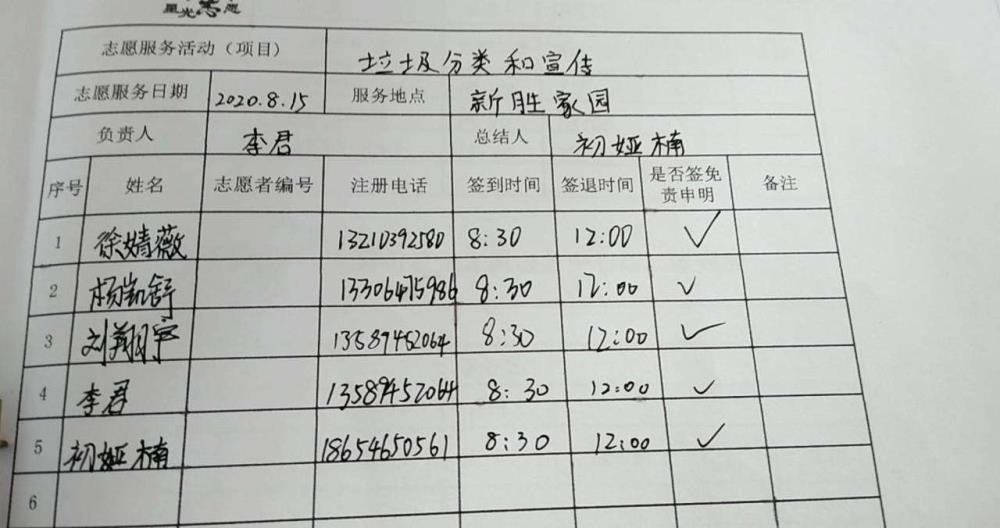 星光志愿
志愿服务活动（项目） 垃圾分类和宣传
志愿服务日期 2020.8.15 服务地点 新胜家园
负责人 李君 总结人 初娅楠
序号 姓名 志愿者编号 注册电话 签到时间 签退时间 是否签免责申明 备注
1 徐婧薇 13210392580 8:30 12:00 ✓
2 杨凯舒 13306475986 8:30 12:00 ✓
3 刘翔宇 13589452064 8:30 12:00 ✓
4 李君 13589452064 8:30 12:00 ✓
5 初娅楠 18654650561 8:30 12:00 ✓
6